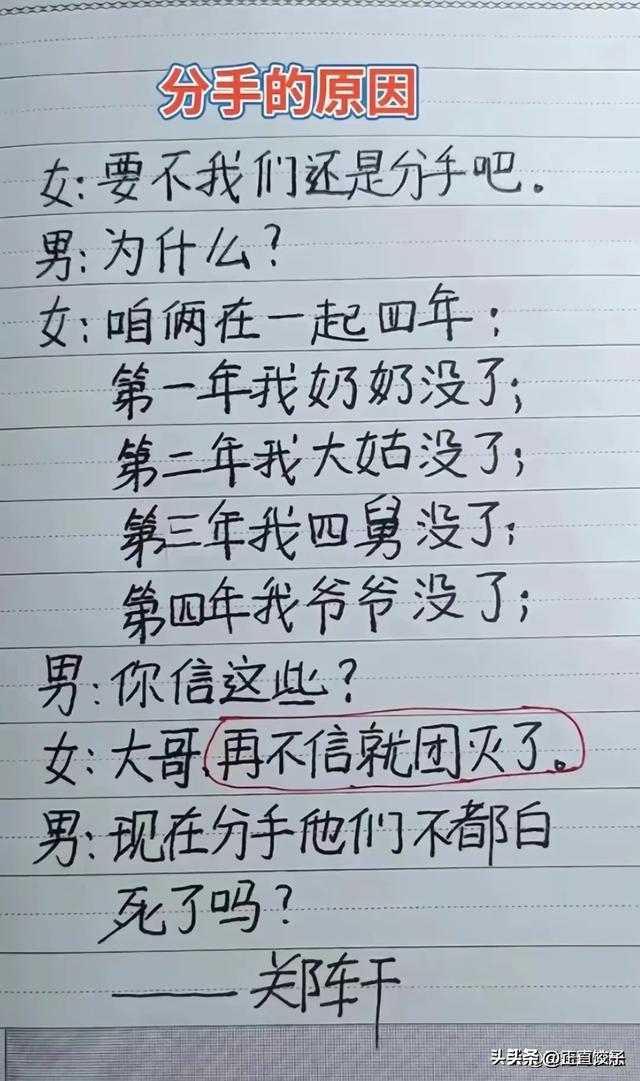 分手的原因
女:要不我们还是分手吧.
男:为什么?
女:咱俩在一起四年;
第一年我奶奶没了;
第二年我大姑没了;
第三年我四舅没了;
第四年我爷爷没了;
男:你信这些?
女:大哥,再不信就团灭了。
男:现在分手他们不都白
死了吗?
——郑阵干
头条 @正直饺子